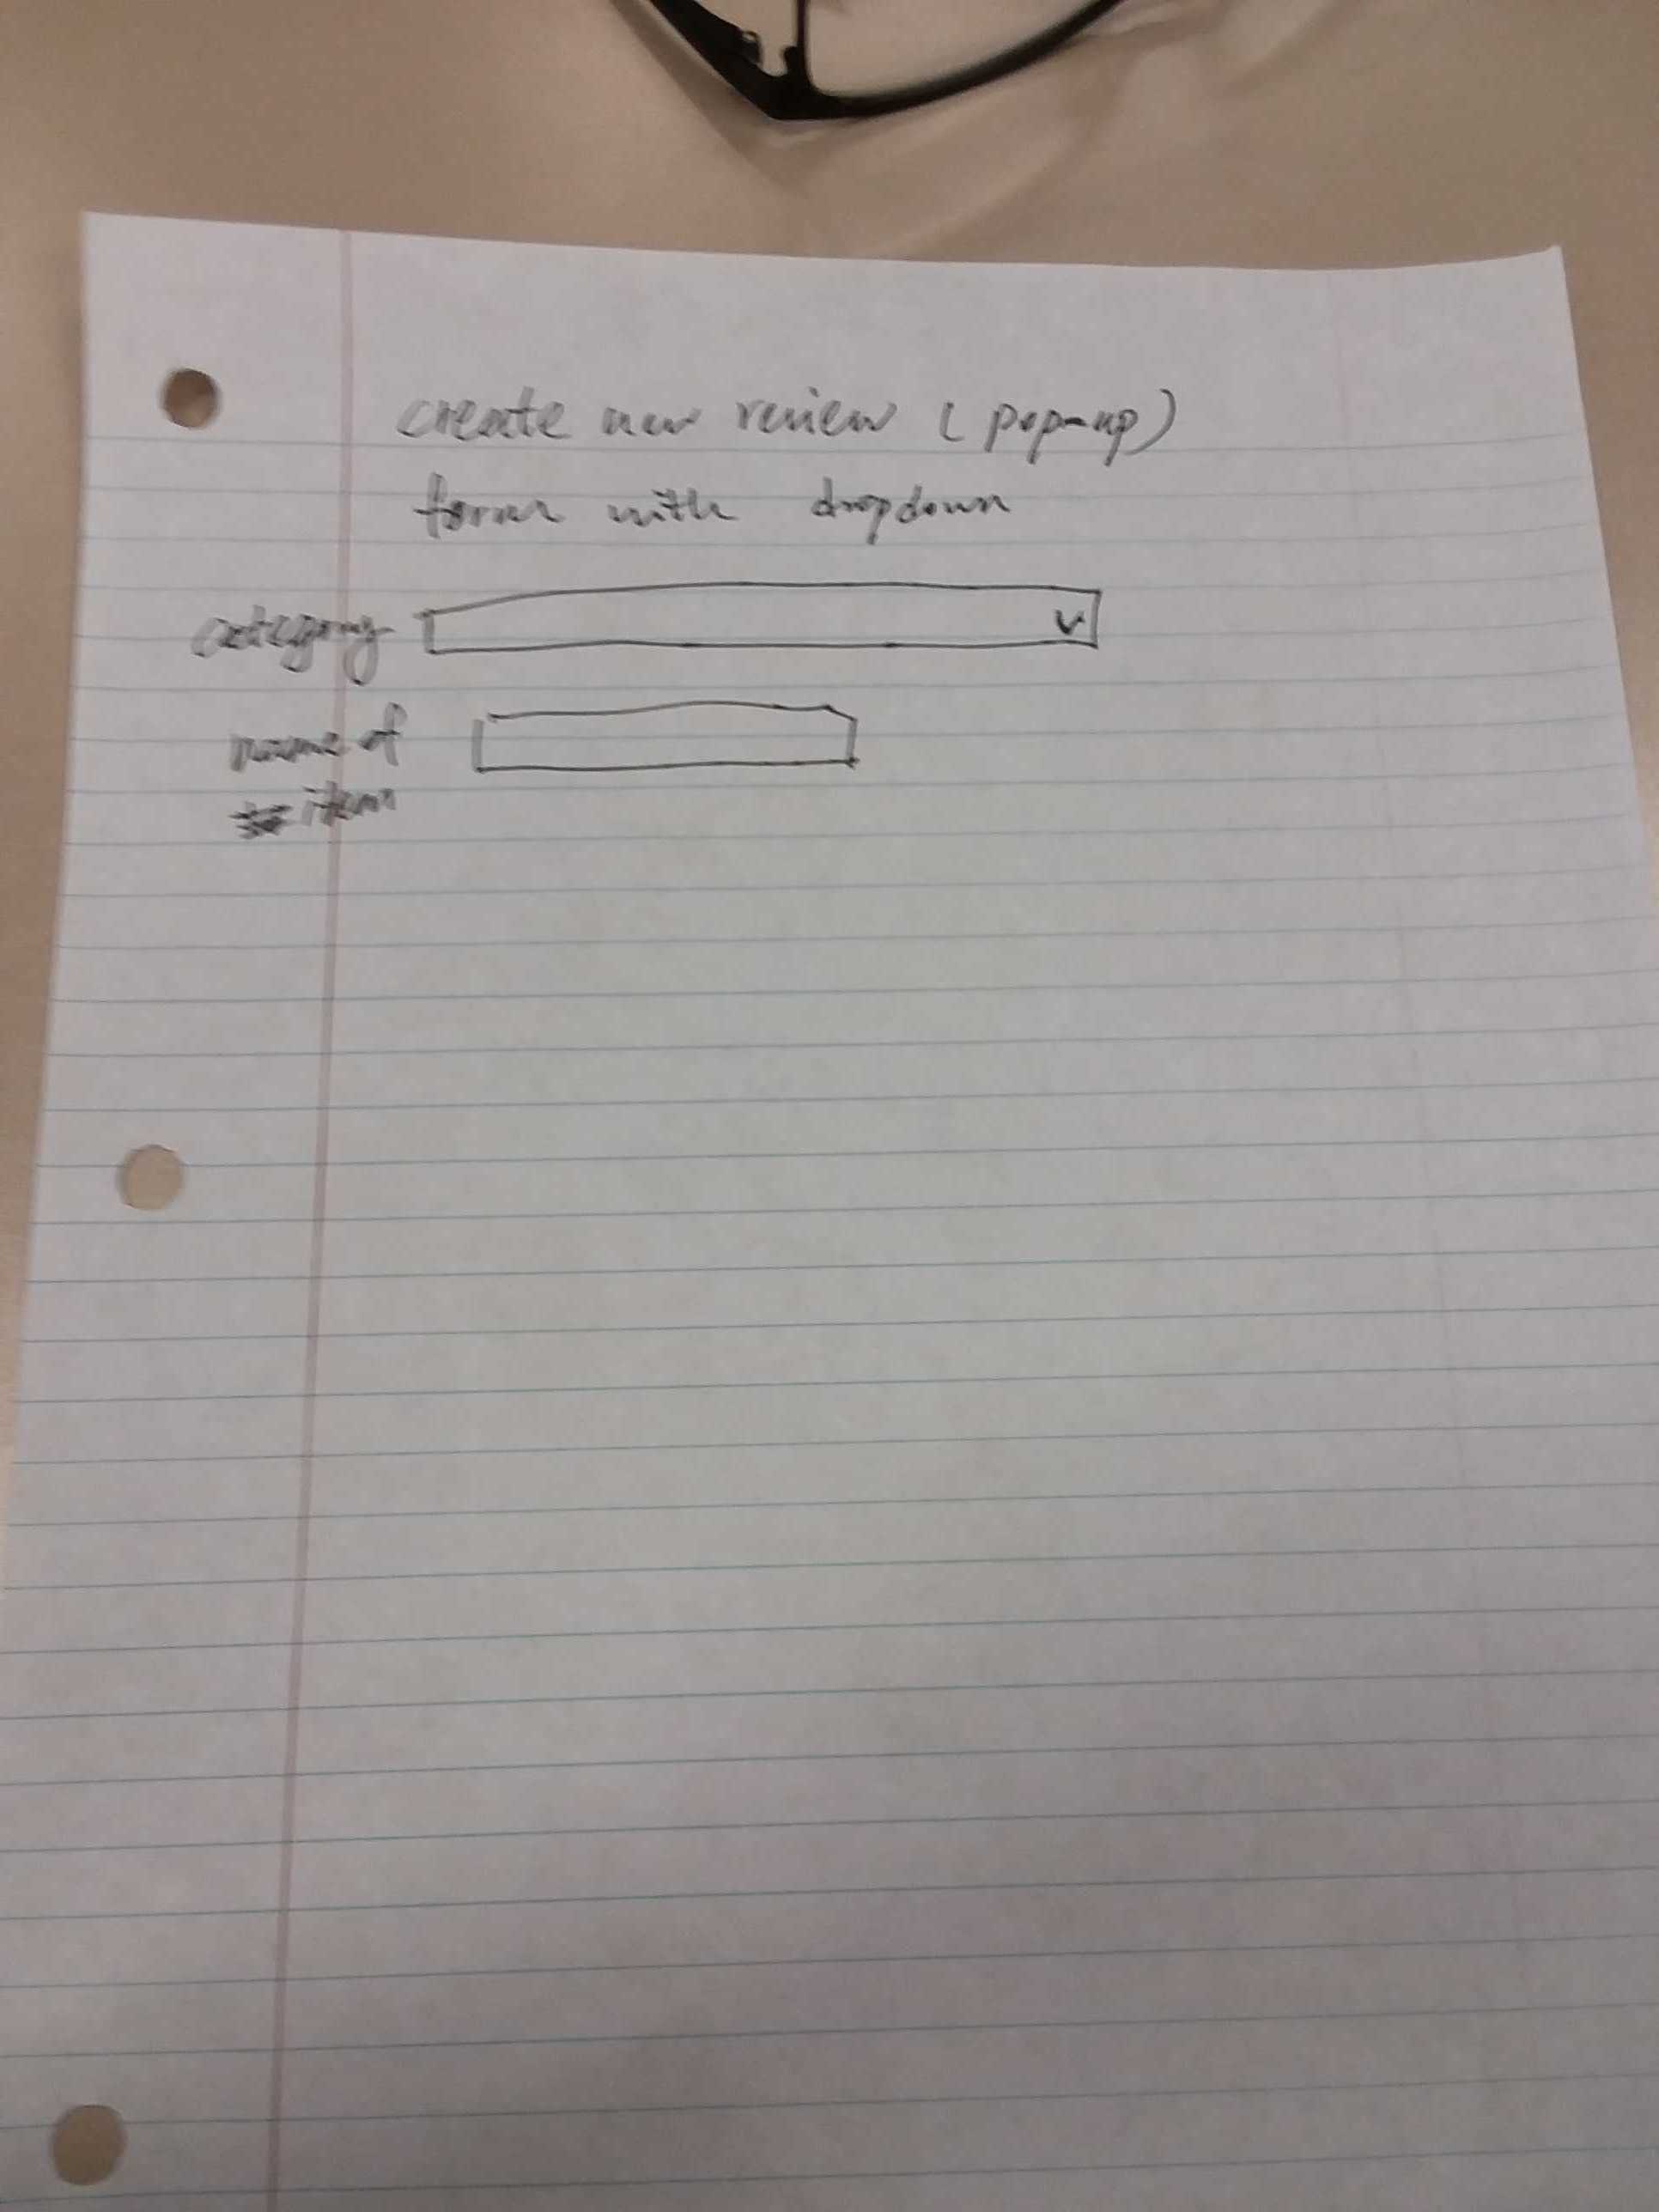 create new review (pop-up)
form with dropdown
category
name of
item